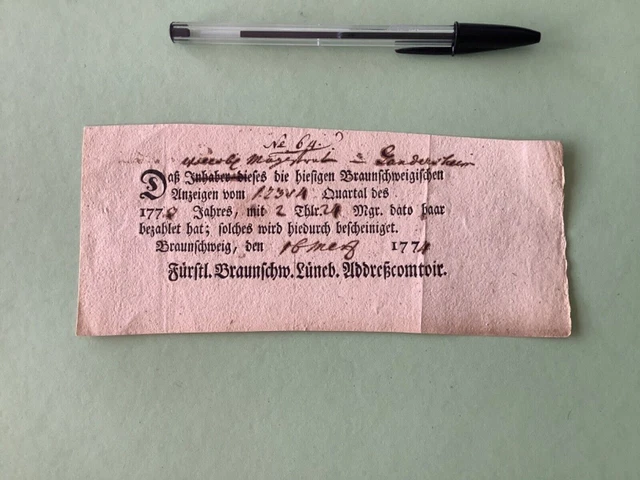 No 69.
Magistrat Gandersheim
Daß Inhaber dieses die hiesigen Braunschweigischen
Anzeigen vom 1 2 3 & 4 Quartal des
177 Jahres, mit 2 Thlr. 24 Mgr. dato baar
bezahlet hat; solches wird hiedurch bescheiniget.
Braunschweig, den 16 Merz 1771
Fürstl. Braunschw. Lüneb. Addreßcomtoir.